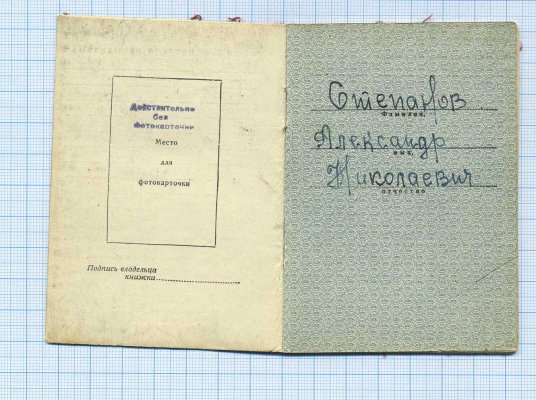 Действительно
без
фотокарточки
Место
для
фотокарточки
Подпись владельца
книжки
Степанов
Фамилия,
Александр
имя,
Николаевич
отчество